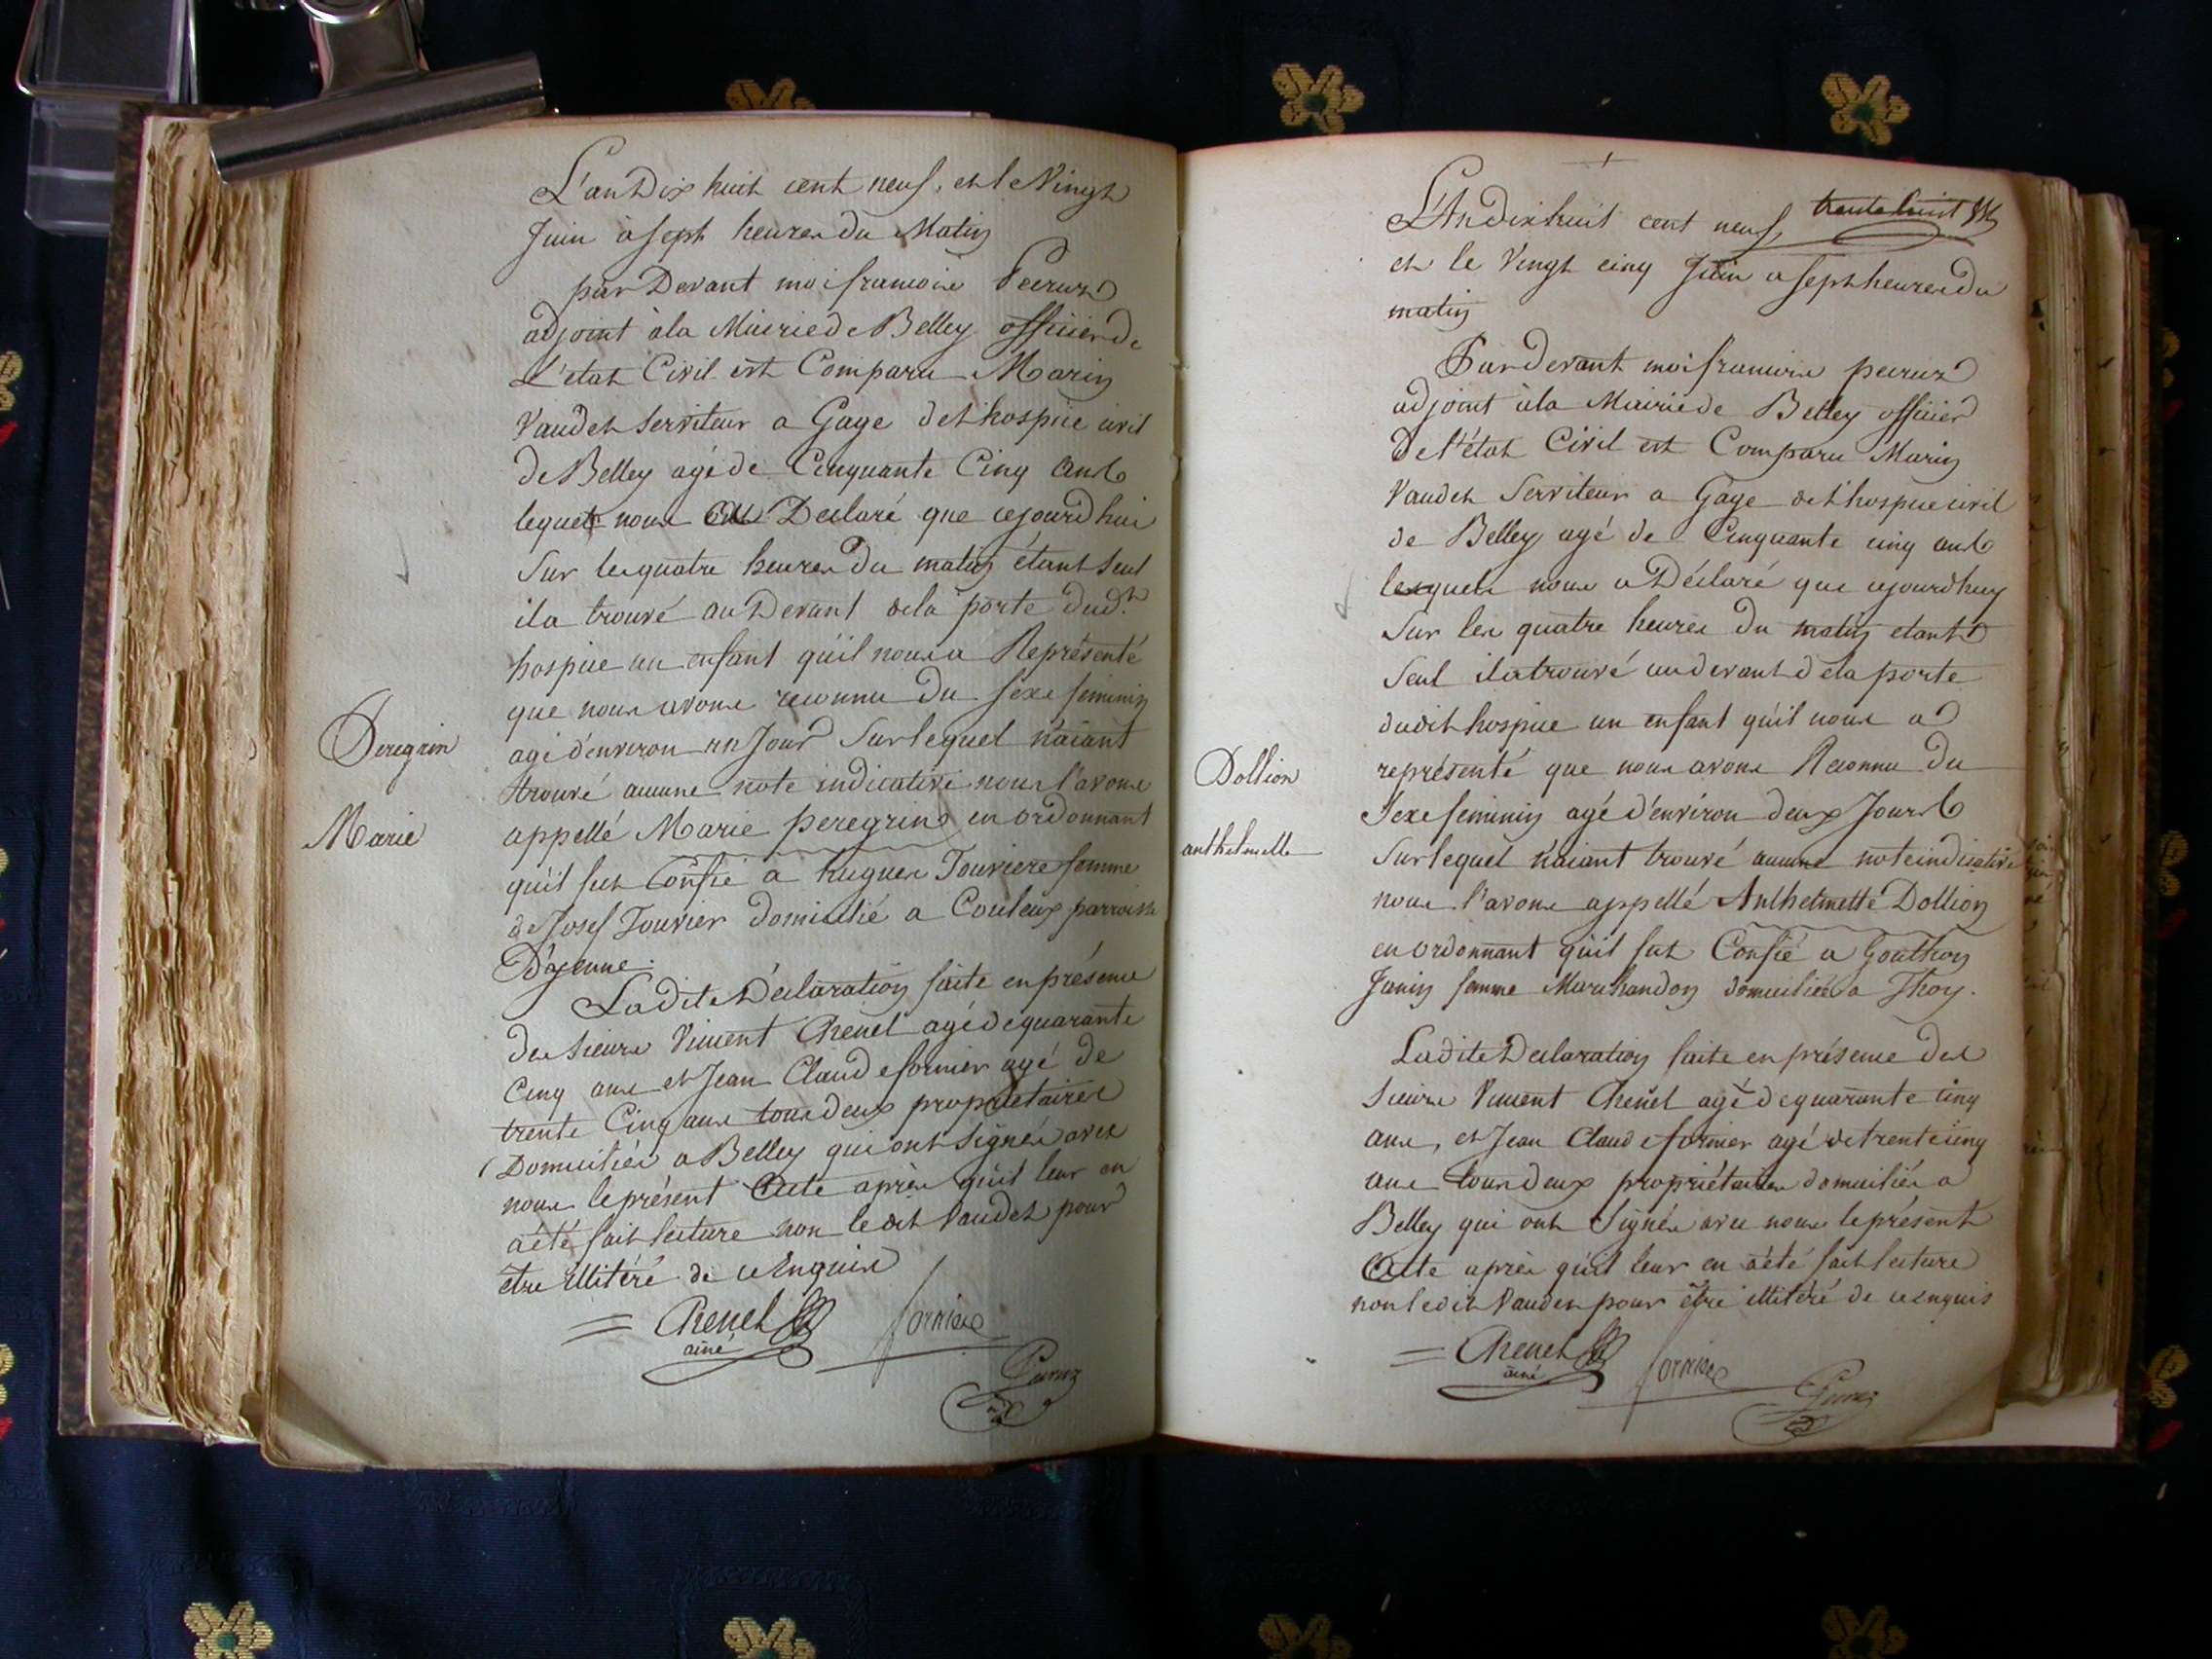 L'an Dix huit cent neuf, et le Vingt
Juin à sept heures du Matin
par Devant moi francois Peruz
adjoint à la Mairie de Belley officier de
L'etat Civil est Comparu Marin
Vaudet Serviteur a Gage de l'hospice civil
de Belley agé de Cinquante Cinq ans
lequel nous a Declaré que cejourd'hui
Sur les quatre heures du matin étant seul
il a trouvé au Devant de la porte dud.t
hospice un enfant qu'il nous a Représenté
que nous avons reconnu du sexe feminin
agé d'environ un Jour Sur lequel n'aiant
trouvé aucune note indicative nous l'avons
appellé Marie peregrin en ordonnant
qu'il fut Confié a hugues Touviere femme
de Josef Touvier domicilié a Couleux parroisse
D'ajenne.
Ladite Déclaration faite en présence
des sieurs Vincent Chenel agé de quarante
Cinq ans et Jean Claude fornier agé de
trente Cinq ans tous deux propriétaires
Domiciliés a Belley qui ont signés avec
nous le présent Acte après qu'il leur en
a été fait lecture non le dit Vaudet pour
être illitéré de ce Enquis
Chenel
ainé
fornier
Peruz
Peregrin
Marie
trente huit
L'An dix huit cent neuf,
et le Vingt cinq Juin a sept heures du
matin
Par devant moi francois peruz
adjoint à la Mairie de Belley officier
De l'état Civil est Comparu Marin
Vaudet Serviteur a Gage de l'hospice civil
de Belley agé de Cinquante cinq ans
lequel nous a Déclaré que cejourd'huy
Sur les quatre heures du matin etant
Seul il a trouvé au devant de la porte
dudit hospice un enfant qu'il nous a
représenté que nous avons Reconnu du
Sexe feminin agé d'environ deux Jours
Sur lequel n'aiant trouvé aucune note indicative
nous l'avons appellé Anthelmette Dollion
en ordonnant qu'il fut Confié a Gouthon
Janin femme Marchandon domiciliée a Thoy.
Ladite Declaration faite en présence des
Sieurs Vincent Chenel agé de quarante cinq
ans, et Jean Claude fornier agé de trente cinq
ans tous deux propriétaires domiciliés a
Belley qui ont Signés avec nous le présent
Acte après qu'il leur en a été fait lecture
non ledit Vaudet pour être illitéré de ce enquis
Chenel
ainé
fornier
Peruz
Dollion
anthelmette